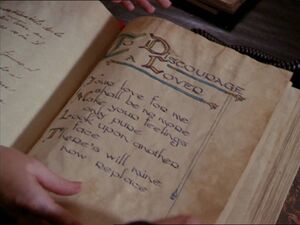 To Discourage
a Lover
Your love for me
shall be no more
Make your feelings
only pure
Look upon another
face
There's will mine
now replace